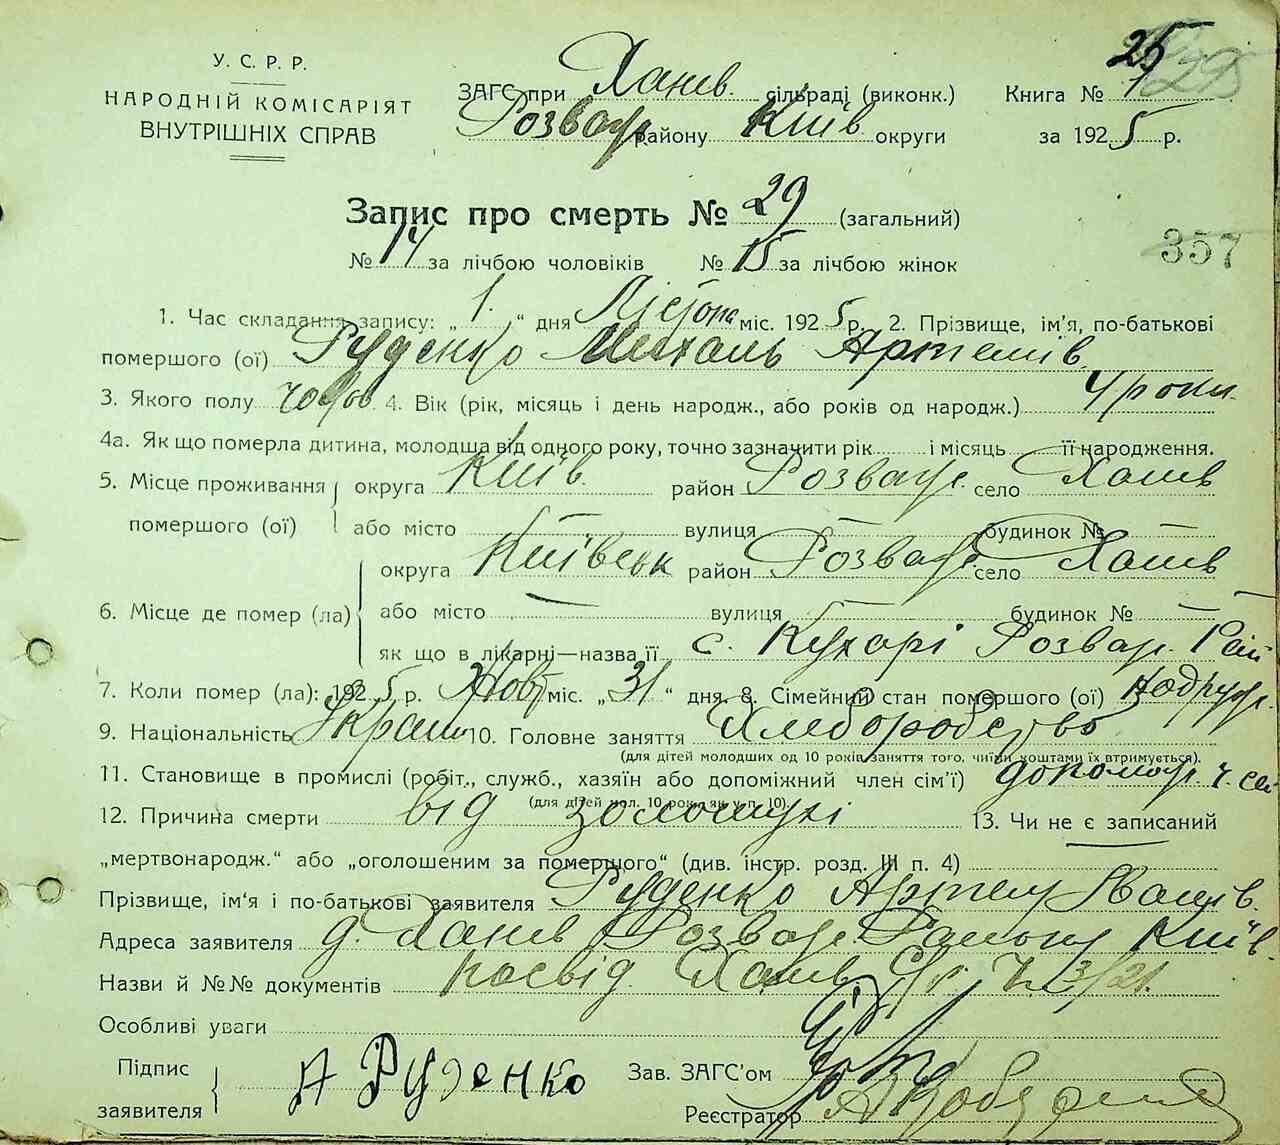 У. С. Р. Р.
НАРОДНІЙ КОМІСАРІЯТ
ВНУТРІШНІХ СПРАВ
25
ЗАГС при Ханев. сільраді (виконк.) Книга № 1
Розваж. району Київ округи за 1925 р.
Запис про смерть № 29 (загальний)
№ 14 за лічбою чоловіків № 15 за лічбою жінок
357
1. Час складання запису: „ 1. “ дня Лістопа міс. 1925 р. 2. Прізвище, ім’я, по-батькові
помершого (ої) Руденко Михаль Артемів.
3. Якого полу чолов. 4. Вік (рік, місяць і день народж., або років од народж.) 4 роки.
4а. Як що померла дитина, молодша від одного року, точно зазначити рік і місяць її народження.
5. Місце проживання округа Київ. район Розваж. село Ханев
помершого (ої) або місто — вулиця — будинок № —
округа Київськ район Розваж. село Ханев
6. Місце де помер (ла) або місто — вулиця — будинок № —
як що в лікарні—назва її с. Кухарі Розваж. Рай
7. Коли помер (ла): 1925 р. Жовт міс. „ 31 “ дня. 8. Сімейний стан помершого (ої)
9. Національність Украін 10. Головне заняття Хлеборобство
(для дітей молодших од 10 років заняття того, чиїми коштами їх втримується).
11. Становище в промислі (робіт., служб., хазяїн або допоміжний член сім’ї) допомож. ч. сем
(для дітей мол. 10 рок. як у п. 10).
12. Причина смерти від золотухі 13. Чи не є записаний
„мертвонародж.“ або „оголошеним за померщого“ (див. інстр. розд. III п. 4) —
Прізвище, ім‘я і по-батькові заявителя Руденко Артем Іванів.
Адреса заявителя д. Ханев Розваж. Району Київ.
Назви й №№ документів посвід. Ханев. С/р. Ч. 3/21.
Особливі уваги
Підпис заявителя А Руденко Зав. ЗАГС’ом
Реєстратор